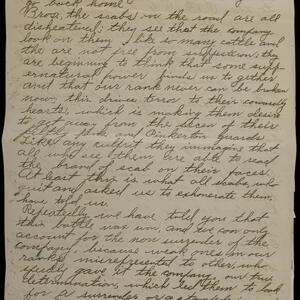 go back home"
Bros, the scabs in the road are all
disheartened; they see that the company
look on them, like so many cattle and
the are not free from suspicion; they
are beginning to think that some sup-
ernatural power finds us to gether
and that our rank never can be broken
now, this drives terror to their cowardly
hearts, which is making them desire
to get away from the of their
filthy and Pinkerton guards
Like any culprit they immagine that
all who see them are able to read
the brand of scab on their faces.
At least this is what all scabs, who
quit and asked us to exhonerate them,
have told us.
Repeatedly we have told you that
this battle was won, and we can only
account for the non surrender of the
company, because weak ones in our
ranks misrepresented to others, who
speedly gave it the company, our true
determination, which led them to look
for a surrender or a stampede